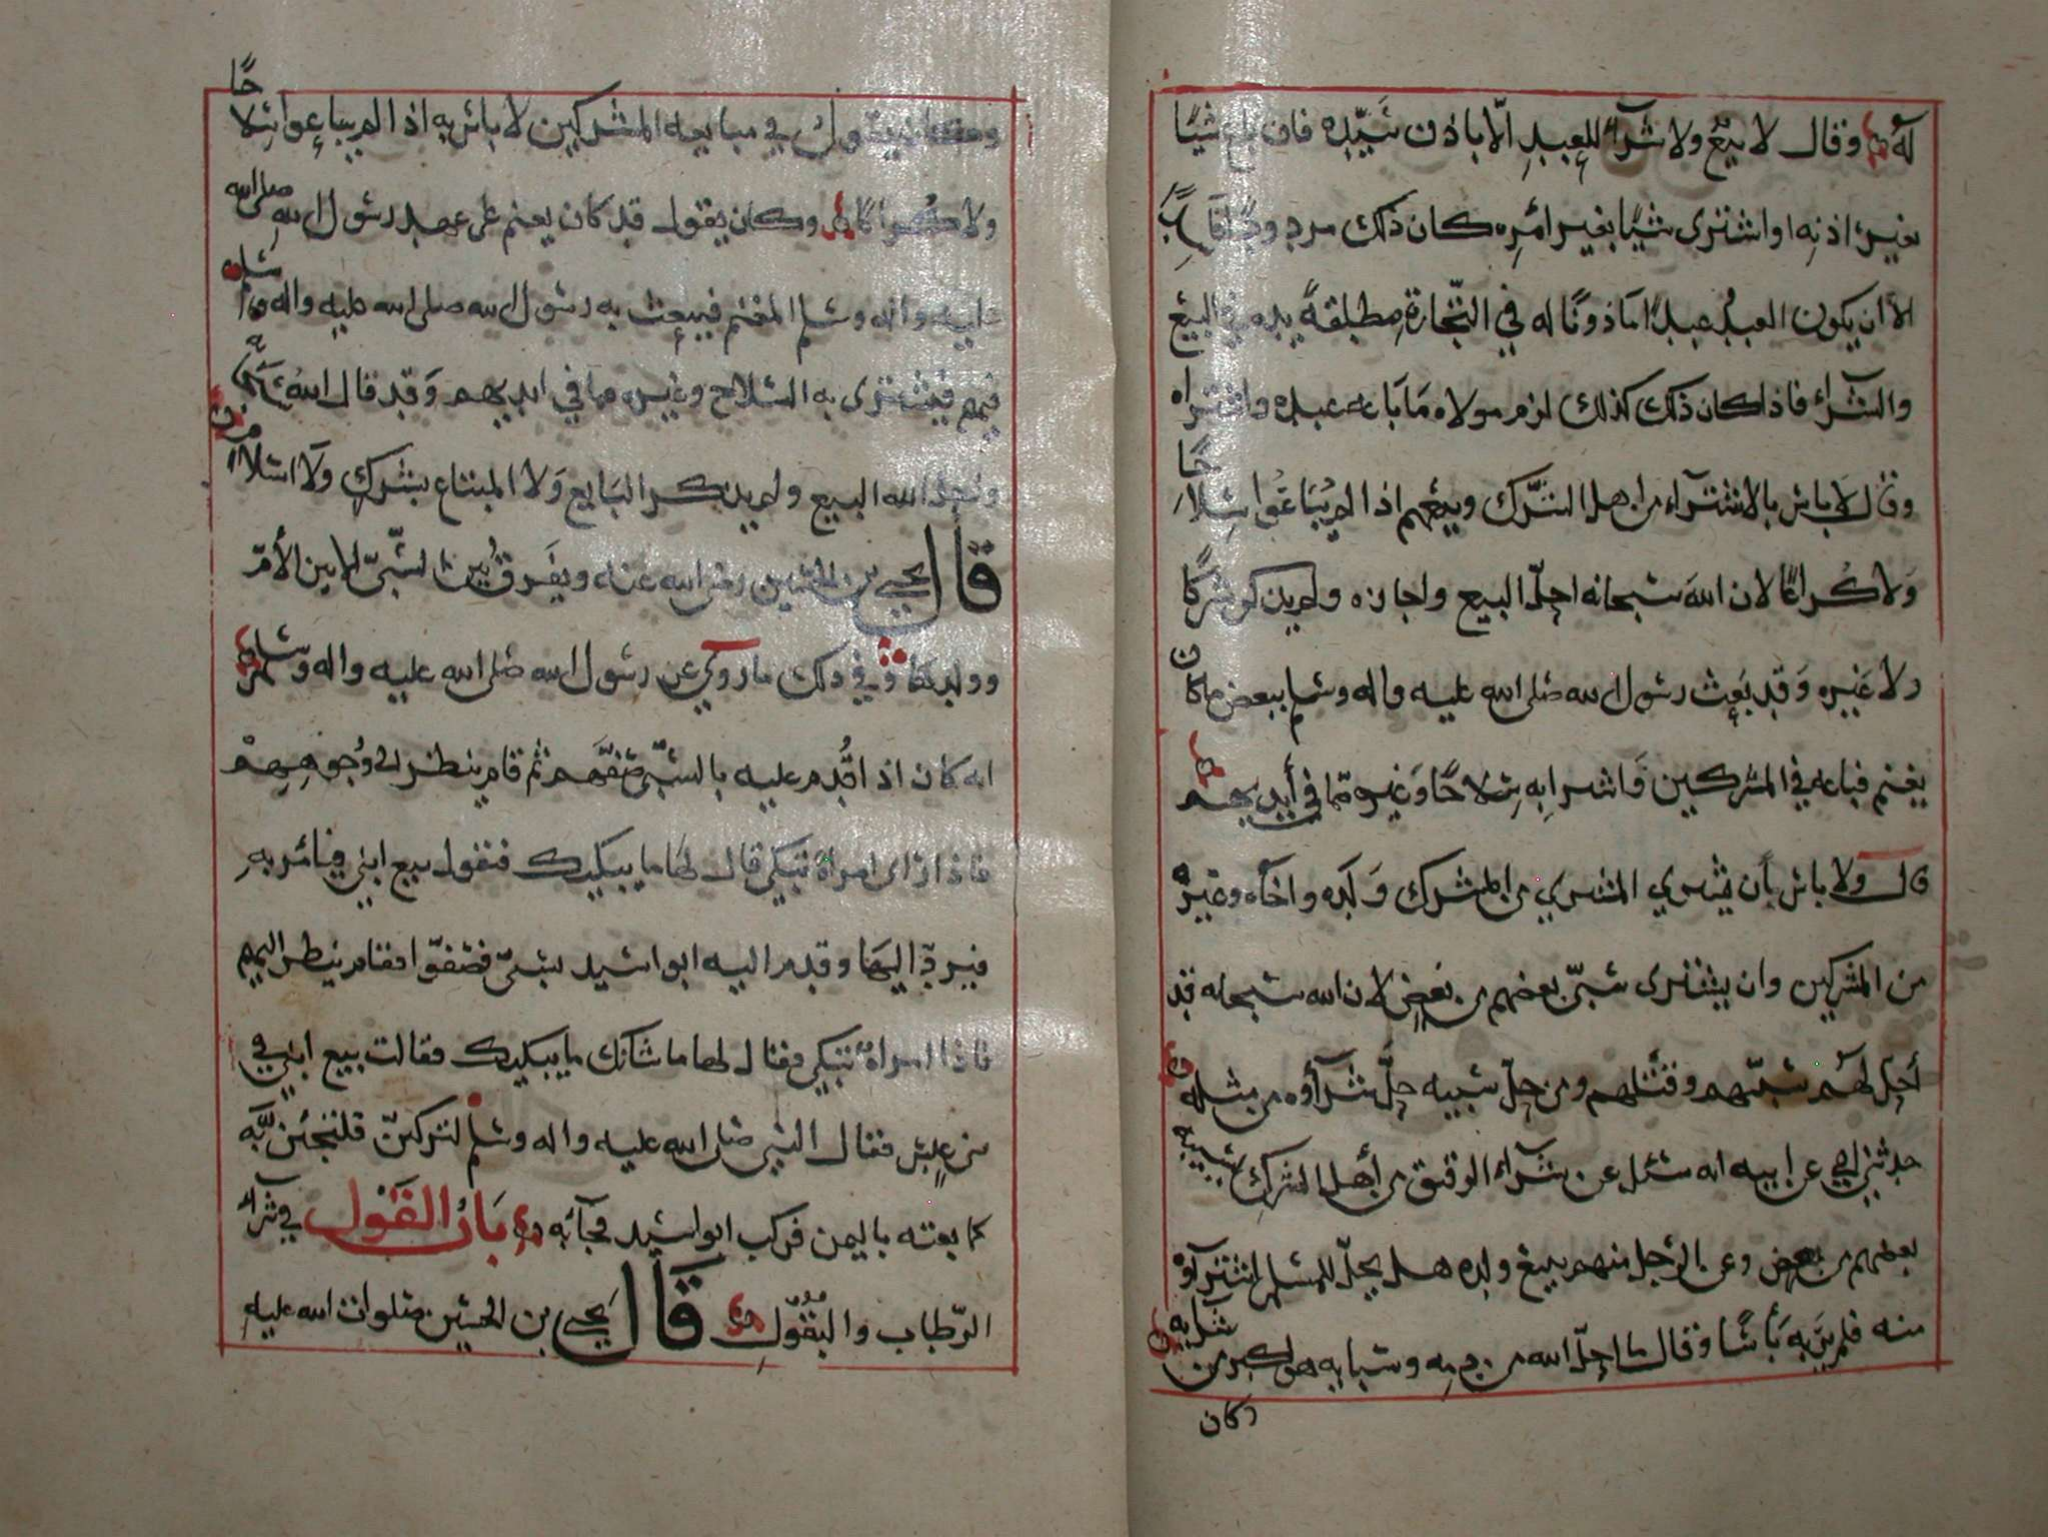 له وقال لا بيع ولا شرآء للعبد الّا باذن سَيّده فان باع شيًا
بغير اذنه او اشترى شيًا بغير امره كان ذلك مردودًا فَاسِ
الا أن يكون العبد عبدًا مَاذونًا له في التّجارة مطلقةً يده في البيع
والشرآء فاذا كان ذلك كذلك لزم مولاه مَا بَاعه عبده واشتراه
وقال لا باس بالاشترآء من اهل الشّرك وبيعهم اذا لم يُبَاعُوا سِلاحًا
وَلا كُراعًا لان اللهَ سبحانه احلّ البيع واجازه ولم يذكر شركًا
ولا غَيره وَقد بَعث رسول الله صلى الله عليه واله وسلم ببعض ما كان
يغنم فباعه في المشركين وَاشترى به سِلاحًا وَغيره ممّا في أيديهم
قال ولا باس بأن يشتري المشتري من المشرك وَلَده واخآه وغيره
من المشركين وان يشترى سبيّ بعضهم من بعضٍ لان الله سبحانه قد
أحل لهُم سبيّهم وقتلهم ومن حلّ سبيه حلَّ شرآوه من مثله
حدثني ابي عن ابيه انه سئل عن شرآء الرقيق من أهل الشرك يسبيه
بعضهم من بعض وعن الرجل منهم يبيع ولده هل يحلّ للمسلم اشترآؤه
منه فلم يرَ به بَأسًا وقال ما احلّ الله من دمه وسبايه هو اكبر من شرايه
وكان
ولا كُراعًا وكان يقول قد كان يغنم على عهد رسول الله صلى الله
عليه واله وسلم المغنم فيبعث به رسول الله صلى الله عليه واله وسلم
فيشترى به السلاح وغيره مما في ايديهم وَقد قال اللهُ
واحل الله البيع ولم يذكر البَايع وَلا المبتاع بشرك وَلا اسلام
قال يحيى بن الحسين رضي الله عنه ويفرق بين السّبيّ الا بين الأمّ
وولدها وفي ذلك ما روي عن رسول الله صلى الله عليه واله وسلم
انه كان اذا قُدم عليه بالسّبيّ صَفّهم ثم قام ينظر الى وُجوههم
فاذا رَاى امراة تبكي قال لهَا ما يبكيك فتقول بيع ابني فيامر به
فيردّ اليهَا وقدم اليه ابو اسيد بسَبيّ فصفّوا فقام ينظر اليهم
فاذا امراة تبكي فقال لها ما شانك ما يبكيك فقالت بيع ابني في
بني عبس فقال النبي صلى الله عليه واله وسلم لتركبنّ فلتجئنّ به
كما بعته باليمن فركب ابو اسيد فجآءَ به بَابُ القَول في شرآء
الرّطاب والبُقُول قال يَحيى بن الحسين صلوات الله عليه